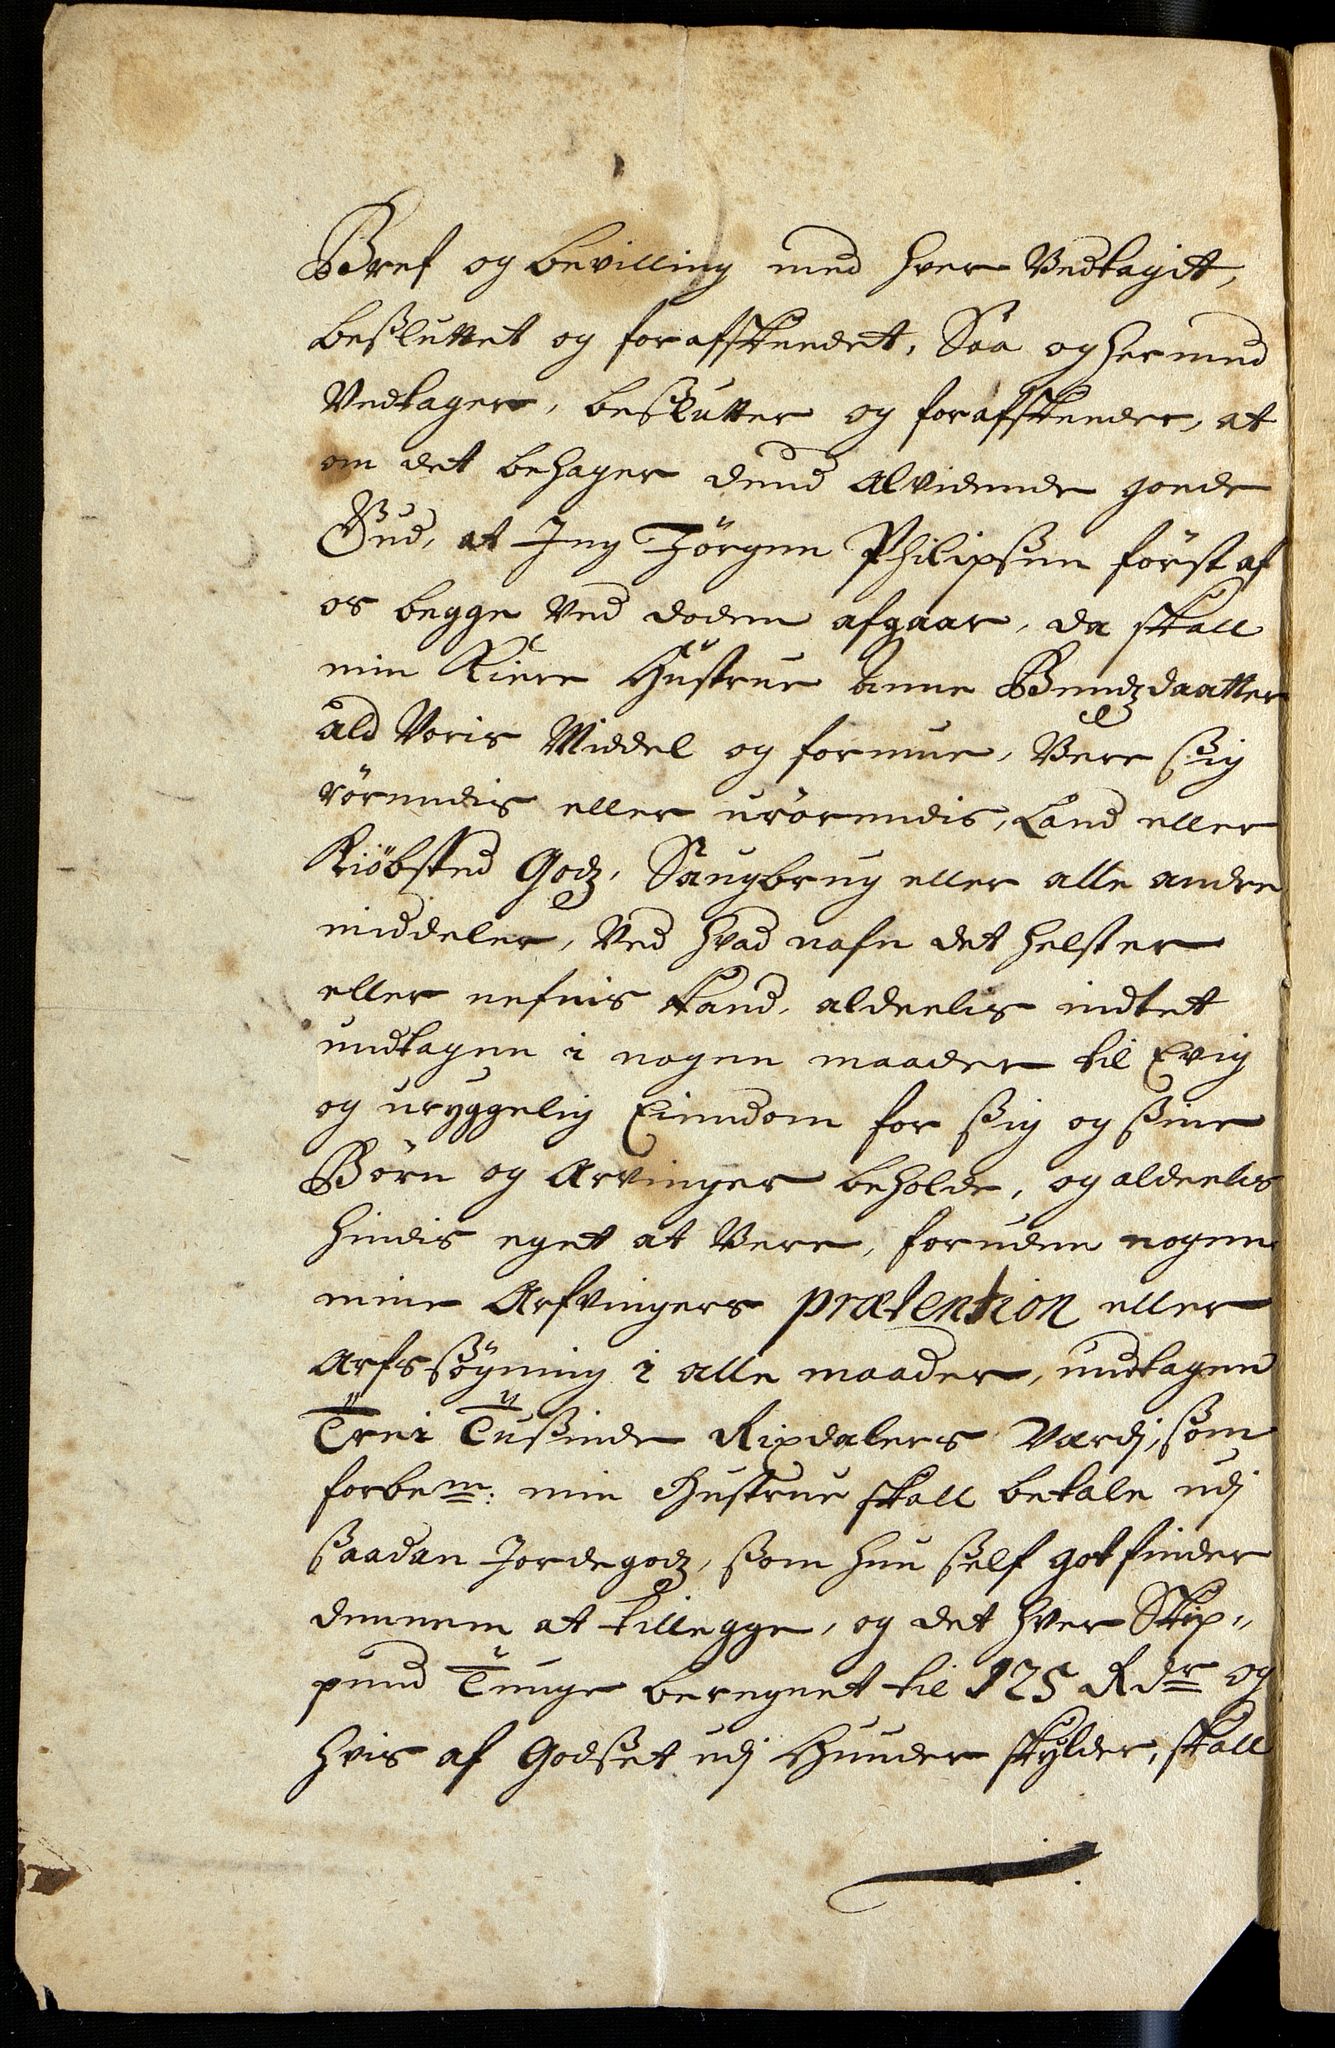 Bref og bevilling med hver Vedtagit,
besluttet og forafskeedet, Saa og hermed
Vedtager, beslutter og forafskeeder, at
om det behager dend Alvidende goede
Gud, at Jeg Jörgen Philipsen först af
os begge Ved döden afgaar, da skall
min Kiere Hustrue Anne Bendzdaatter
ald Voris Middel og formue, Vere sig
rörendis eller urörendis, Land eller
Kiöbsted Godz, Saugbrug eller alle andre
middeler, Ved hvad nafn det helst er
eller nefnis kand, aldeelis indtet
undtagen i nogen maader til Evig
og uryggelig Eiendom for sig og sine
Börn og Arvinger beholde, og aldeelis
hindis eget at Vere, foruden nogen
mine Arfvingers prætention eller
Arfssögning i alle maader, undtagen
Trei Tusinde Rixdalers Værdj, som
forbe.te min Hustrue skall betale udj
saadan Jordegodz, som hun self got finder
dennem at tillegge, og det hver Skip-
pund Tunge beregnet til 125 Rdr og
hvis af Godset udj Huuder skylder, skall